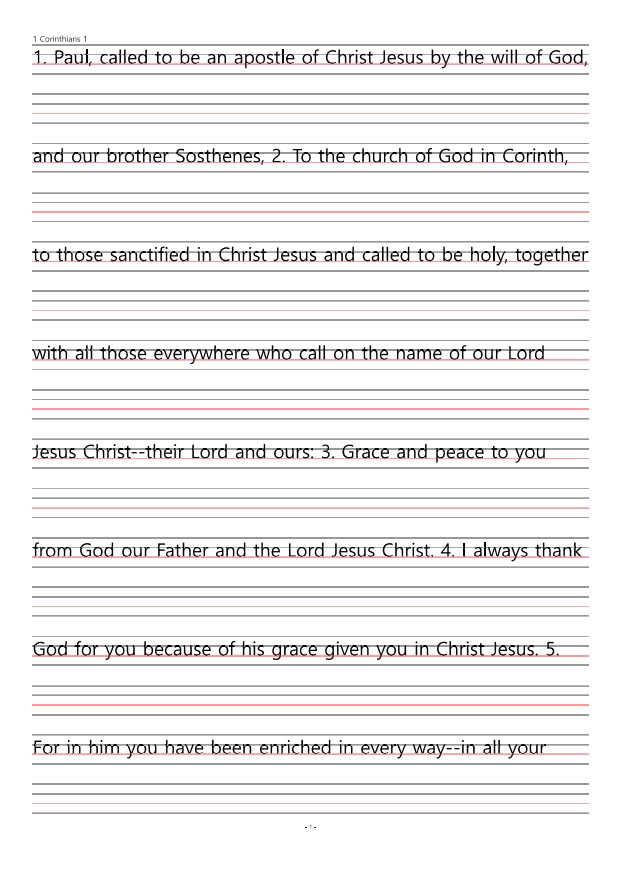 1 Corinthians 1
1. Paul, called to be an apostle of Christ Jesus by the will of God,
and our brother Sosthenes, 2. To the church of God in Corinth,
to those sanctified in Christ Jesus and called to be holy, together
with all those everywhere who call on the name of our Lord
Jesus Christ--their Lord and ours: 3. Grace and peace to you
from God our Father and the Lord Jesus Christ. 4. I always thank
God for you because of his grace given you in Christ Jesus. 5.
For in him you have been enriched in every way--in all your
- 1 -